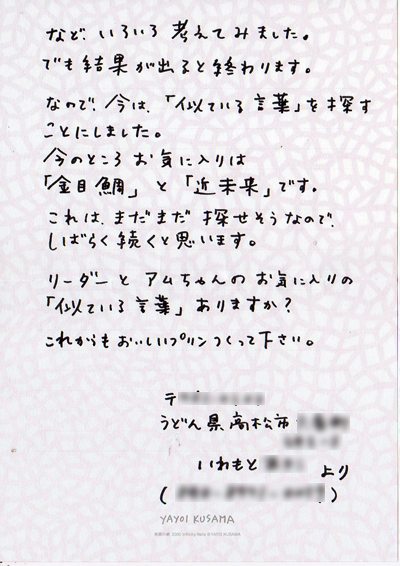 など いろいろ 考えてみました。
でも結果が出ると終わります。
なので、今は、「似ている言葉」を探す
ことにしました。
今のところ お気に入りは
「金目鯛」 と 「近未来」です。
これは、まだまだ 探せそうなので、
しばらく続くと思います。
リーダーと アムちゃんの お気に入りの
「似ている言葉」 ありますか?
これからも おいしいプリン つくって下さい。
〒
うどん県 高松市
いわもと より
( )
YAYOI KUSAMA